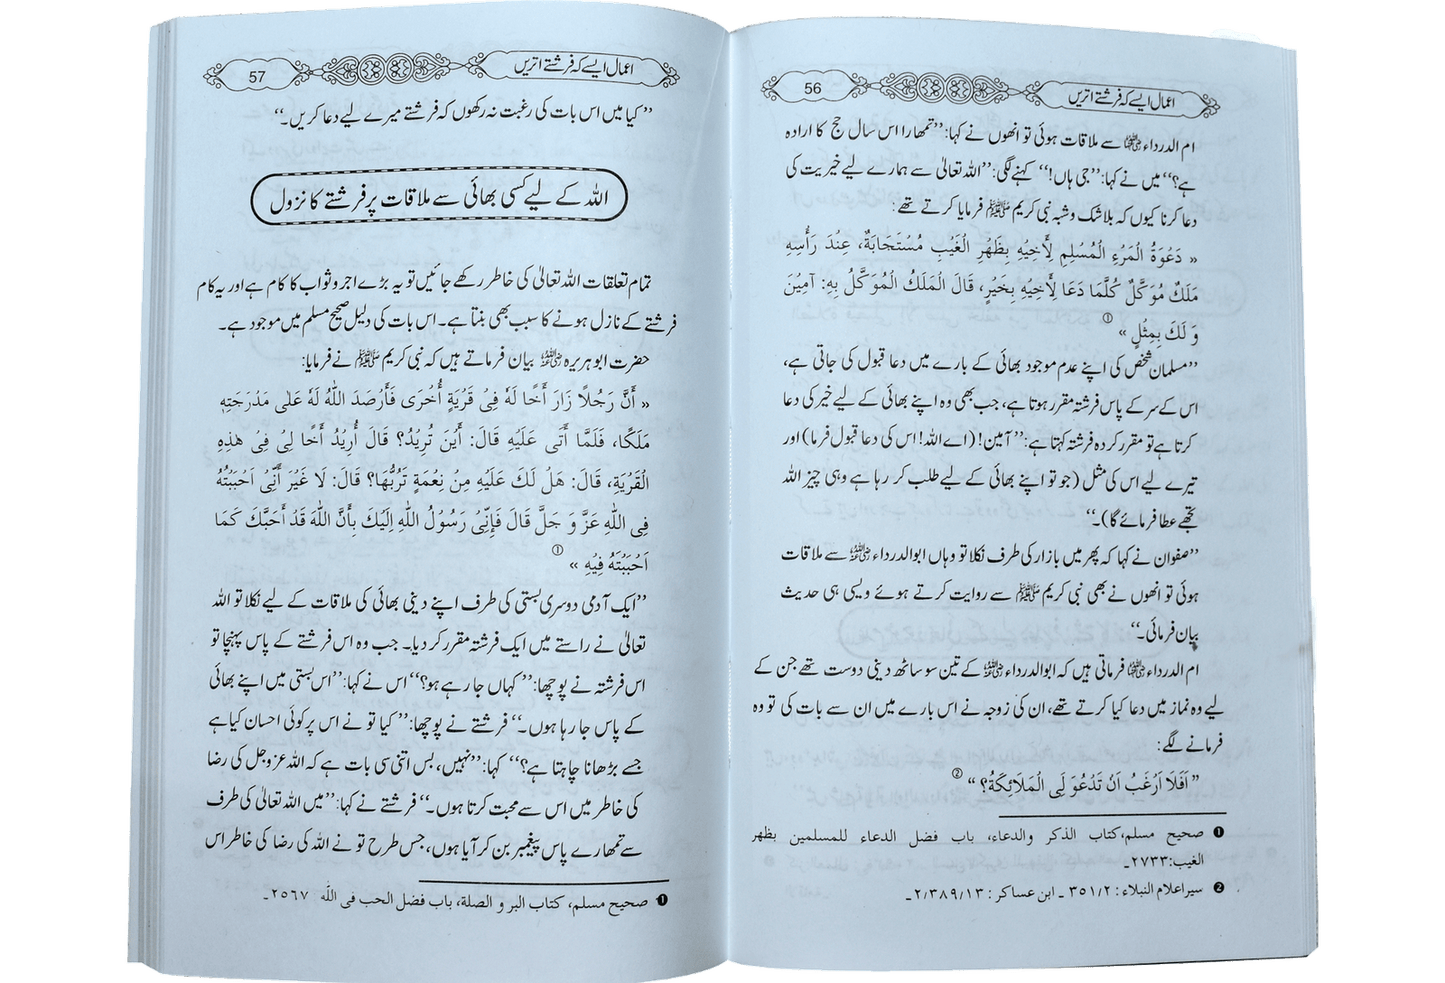 56
اعمال ایسے کہ فرشتے اتریں
ام الدرداء ؓ سے ملاقات ہوئی تو انھوں نے کہا: ’’تمھارا اس سال حج کا ارادہ
ہے؟‘‘ میں نے کہا: ’’جی ہاں!‘‘ کہنے لگی: ’’اللہ تعالیٰ سے ہمارے لیے خیریت کی
دعا کرنا کیوں کہ بلاشک و شبہ نبی کریم ﷺ فرمایا کرتے تھے:
« دَعْوَةُ الْمَرْءِ الْمُسْلِمِ لِأَخِيْهِ بِظَهْرِ الْغَيْبِ مُسْتَجَابَةٌ، عِنْدَ رَأْسِهِ
مَلَكٌ مُوَكَّلٌ كُلَّمَا دَعَا لِأَخِيْهِ بِخَيْرٍ، قَالَ الْمَلَكُ الْمُوَكَّلُ بِهِ: آمِيْنَ
وَ لَكَ بِمِثْلٍ » ①
’’مسلمان شخص کی اپنے عدم موجود بھائی کے بارے میں دعا قبول کی جاتی ہے،
اس کے سر کے پاس فرشتہ مقرر ہوتا ہے، جب بھی وہ اپنے بھائی کے لیے خیر کی دعا
کرتا ہے تو مقرر کردہ فرشتہ کہتا ہے: ’’آمین! (اے اللہ! اس کی دعا قبول فرما) اور
تیرے لیے اس کی مثل (جو تو اپنے بھائی کے لیے طلب کر رہا ہے وہی چیز اللہ
تجھے عطا فرمائے گا)۔‘‘
’’صفوان نے کہا کہ پھر میں بازار کی طرف نکلا تو وہاں ابوالدرداء ؓ سے ملاقات
ہوئی تو انھوں نے بھی نبی کریم ﷺ سے روایت کرتے ہوئے ویسی ہی حدیث
بیان فرمائی۔‘‘
ام الدرداء ؓ فرماتی ہیں کہ ابوالدرداء ؓ کے تین سو ساٹھ دینی دوست تھے جن کے
لیے وہ نماز میں دعا کیا کرتے تھے، ان کی زوجہ نے اس بارے میں ان سے بات کی تو وہ
فرمانے لگے:
” اَفَلَا اَرْغَبُ اَنْ تَدْعُوَ لِی الْمَلَائِكَةُ؟ “ ②
❶ صحیح مسلم، کتاب الذکر والدعاء، باب فضل الدعاء للمسلمین بظھر
الغیب: ۲۷۳۳۔
❷ سیر اعلام النبلاء : ۳۵۱/۲ ۔ ابن عساکر : ۲/۳۸۹/۱۳۔
57
اعمال ایسے کہ فرشتے اتریں
’’کیا میں اس بات کی رغبت نہ رکھوں کہ فرشتے میرے لیے دعا کریں۔‘‘
اللہ کے لیے کسی بھائی سے ملاقات پر فرشتے کا نزول
تمام تعلقات اللہ تعالیٰ کی خاطر رکھے جائیں تو یہ بڑے اجر و ثواب کا کام ہے اور یہ کام
فرشتے کے نازل ہونے کا سبب بھی بنتا ہے۔ اس بات کی دلیل صحیح مسلم میں موجود ہے۔
حضرت ابو ہریرہ ؓ بیان فرماتے ہیں کہ نبی کریم ﷺ نے فرمایا:
« أَنَّ رَجُلًا زَارَ أَخًا لَهُ فِيْ قَرْيَةٍ أُخْرَى فَأَرْصَدَ اللّٰهُ لَهُ عَلٰى مَدْرَجَتِهِ
مَلَكًا، فَلَمَّا أَتَى عَلَيْهِ قَالَ: أَيْنَ تُرِيْدُ؟ قَالَ أُرِيْدُ أَخًا لِيْ فِيْ هٰذِهِ
الْقَرْيَةِ، قَالَ: هَلْ لَكَ عَلَيْهِ مِنْ نِعْمَةٍ تَرُبُّهَا؟ قَالَ: لَا غَيْرَ أَنِّيْ أَحْبَبْتُهُ
فِي اللّٰهِ عَزَّ وَ جَلَّ قَالَ فَإِنِّيْ رَسُوْلُ اللّٰهِ إِلَيْكَ بِأَنَّ اللّٰهَ قَدْ أَحَبَّكَ كَمَا
أَحْبَبْتَهُ فِيْهِ » ①
’’ایک آدمی دوسری بستی کی طرف اپنے دینی بھائی کی ملاقات کے لیے نکلا تو اللہ
تعالیٰ نے راستے میں ایک فرشتہ مقرر کر دیا۔ جب وہ اس فرشتے کے پاس پہنچا تو
اس فرشتہ نے پوچھا: ’’کہاں جا رہے ہو؟‘‘ اس نے کہا: ’’اس بستی میں اپنے بھائی
کے پاس جا رہا ہوں۔‘‘ فرشتے نے پوچھا: ’’کیا تو نے اس پر کوئی احسان کیا ہے
جسے بڑھانا چاہتا ہے؟‘‘ کہا: ’’نہیں، بس اتنی سی بات ہے کہ اللہ عزوجل کی رضا
کی خاطر میں اس سے محبت کرتا ہوں۔‘‘ فرشتے نے کہا: ’’میں اللہ تعالیٰ کی طرف
سے تمھارے پاس پیغمبر بن کر آیا ہوں، جس طرح تو نے اللہ کی رضا کی خاطر اس
❶ صحیح مسلم، کتاب البر و الصلة، باب فضل الحب فی اللّٰه ۲۵۶۷۔